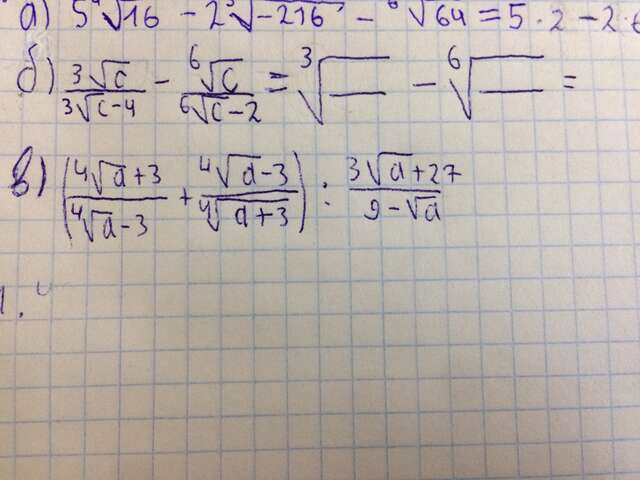 а) 5⁴√16 − 2³√−216 − ⁶√64 = 5 · 2 − 2 ·
б) ³√c / ³√c−4 − ⁶√c / ⁶√c−2 = ³√ — − ⁶√ — =
в) (⁴√a+3 / ⁴√a−3 + ⁴√a−3 / ⁴√a+3) : 3√a+27 / 9−√a
1.